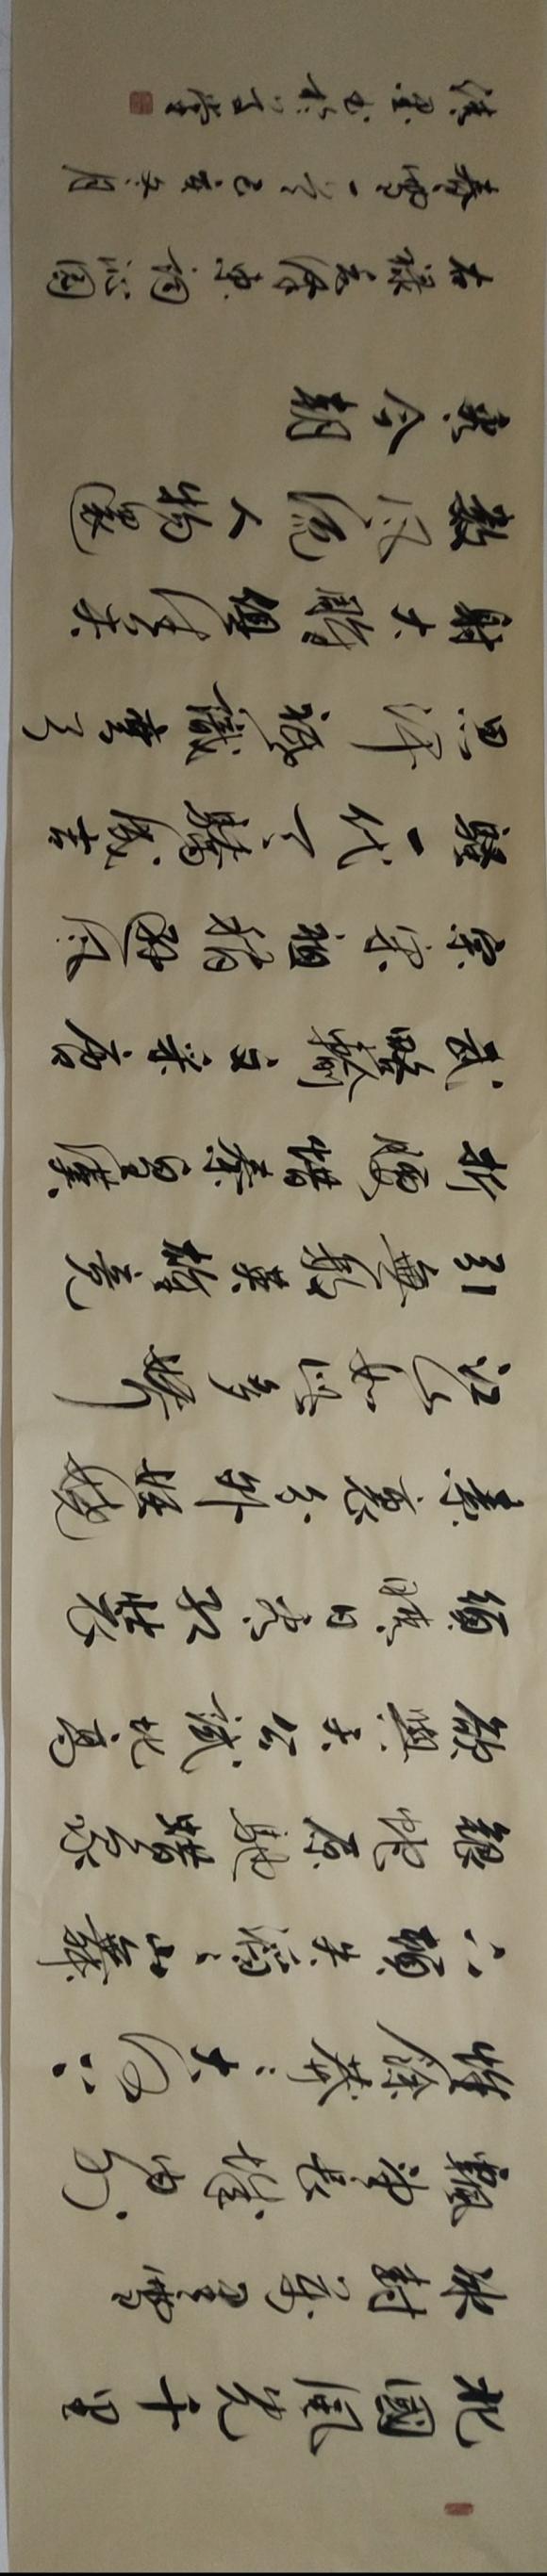 北國風光千里
冰封萬里雪
飄望長城內外
惟餘莽々大河上
下頓失滔々山舞
銀蛇原馳蠟象
欲與天公試比高
須晴日看紅裝
素裹分外妖嬈
江山如此多嬌
引無數英雄竞
折腰惜秦皇漢
武略輸文采唐
宗宋祖稍遜風
騷一代天驕成吉
思汗祗識彎弓
射大雕俱往矣
數風流人物還
看今朝
右錄毛澤東詞沁園
春雪一首己亥冬月
書於